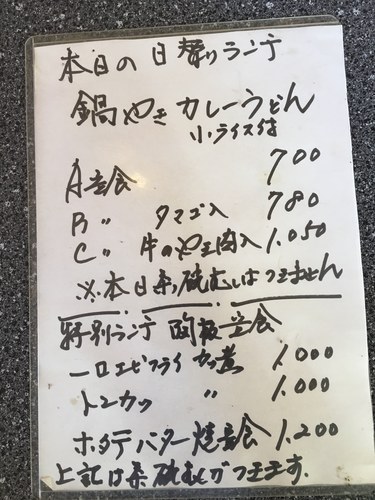 本日の日替りランチ
鍋やきカレーうどん
小ライス付
A定食 700
B 〃 タマゴ入 780
C 〃 牛のやき肉入 1.050
※本日茶碗むしはつきません
特別ランチ 陶板定食
一口エビフライ カツ煮 1.000
トンカツ 〃 1.000
ホタテバター焼定食 1.200
上記は茶碗むしがつきます.